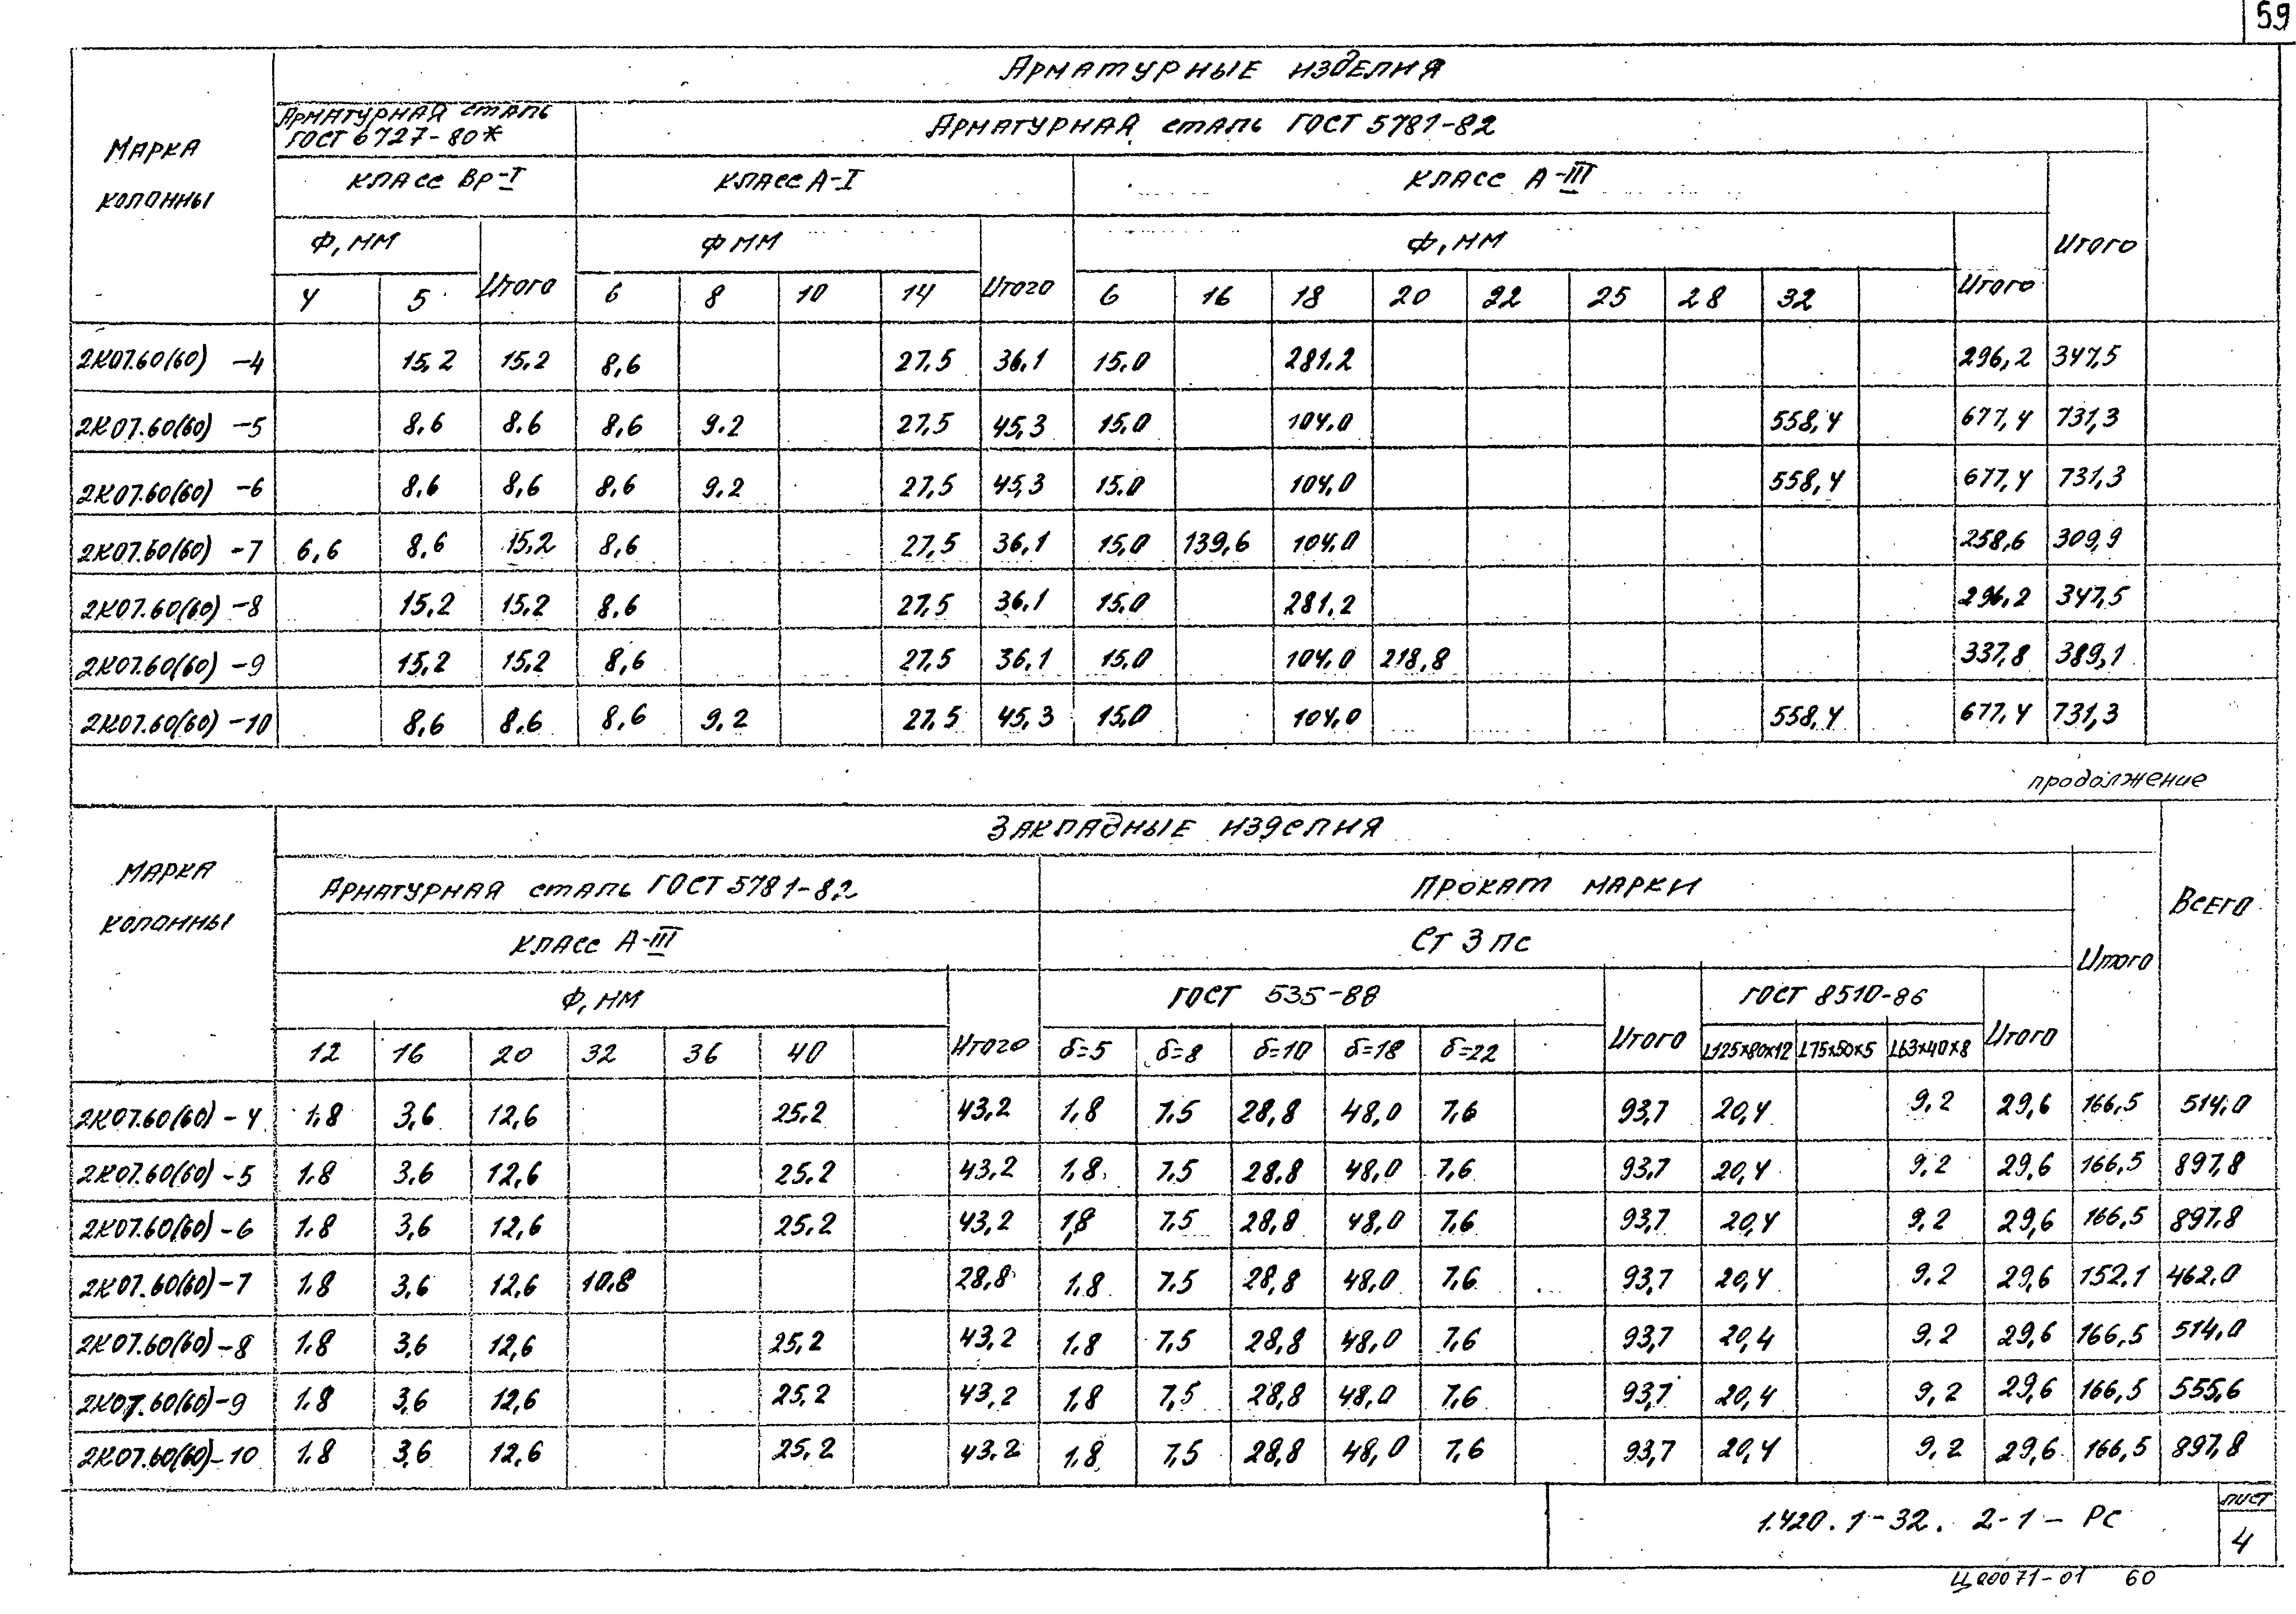 59
Арматурные изделия
Марка колонны
Арматурная сталь ГОСТ 6727-80*
Арматурная сталь ГОСТ 5781-82
Класс Вр-I
Класс А-I
Класс А-III
Ф, мм
Ф мм
Ф, мм
Итого
4 5 Итого 6 8 10 14 Итого 6 16 18 20 22 25 28 32 Итого
2К07.60(60) -4 15,2 15.2 8,6 27,5 36,1 15.0 281.2 296,2 347,5
2К07.60(60) -5 8.6 8.6 8,6 9.2 27,5 45,3 15.0 104.0 558,4 677,4 731,3
2К07.60(60) -6 8,6 8,6 8.6 9.2 27,5 45,3 15.0 104,0 558,4 677,4 731,3
2К07.60(60) -7 6,6 8,6 15,2 8,6 27,5 36,1 15,0 139,6 104,0 258,6 309,9
2К07.60(60) -8 15,2 15,2 8.6 27,5 36.1 15.0 281,2 296,2 347,5
2К07.60(60) -9 15,2 15,2 8,6 27,5 36,1 15,0 104,0 218,8 337,8 389,1
2К07.60(60) -10 8,6 8,6 8,6 9,2 27,5 45,3 15,0 104,0 558,4 677,4 731,3
продолжение
Марка колонны
Закладные изделия
Арматурная сталь ГОСТ 5781-82
Прокат марки
Всего
Класс А-III
Ст 3 пс
Итого
Ф, мм
ГОСТ 535-88
ГОСТ 8510-86
12 16 20 32 36 40 Итого δ=5 δ=8 δ=10 δ=18 δ=22 Итого L125х80х12 L75х50х5 L63х40х8 Итого
2К07.60(60) - 4 1,8 3,6 12,6 25.2 43,2 1,8 7.5 28,8 48,0 7,6 93,7 20,4 9,2 29,6 166,5 514,0
2К07.60(60) - 5 1.8 3.6 12,6 25.2 43,2 1,8 7,5 28,8 48,0 7,6 93,7 20,4 9,2 29,6 166,5 897,8
2К07.60(60) - 6 1.8 3,6 12,6 25,2 43,2 1,8 7,5 28,8 48,0 7,6 93,7 20,4 9,2 29,6 166,5 897,8
2К07.60(60) - 7 1,8 3,6 12,6 10,8 28,8 1,8 7.5 28,8 48,0 7,6 93,7 20,4 9,2 29,6 152,1 462,0
2К07.60(60) - 8 1.8 3,6 12,6 25,2 43,2 1,8 7,5 28,8 48,0 7,6 93,7 20,4 9,2 29,6 166,5 514,0
2К07.60(60) - 9 1.8 3,6 12,6 25,2 43,2 1,8 7,5 28,8 48,0 7,6 93,7 20,4 9,2 29,6 166,5 555,6
2К07.60(60) - 10 1.8 3,6 12,6 25,2 43.2 1,8 7,5 28,8 48,0 7,6 93,7 20,4 9,2 29,6 166,5 897,8
1.420.1-32. 2-1- РС
лист
4
Ц00071-01 60